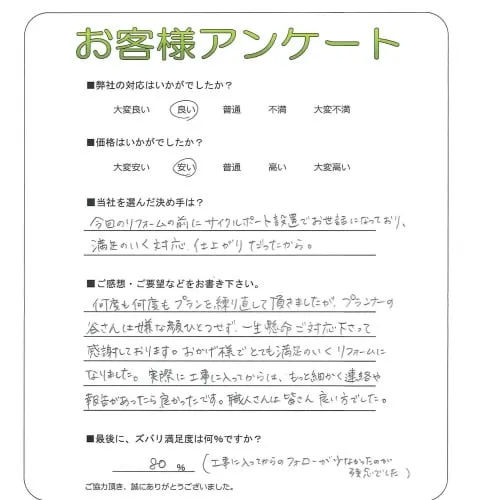 お客様アンケート
■弊社の対応はいかがでしたか？
大変良い 良い 普通 不満 大変不満
■価格はいかがでしたか？
大変安い 安い 普通 高い 大変高い
■当社を選んだ決め手は？
今回のリフォームの前にサイクルポート設置でお世話になっており、
満足のいく対応、仕上がりだったから。
■ご感想・ご要望などをお書き下さい。
何度も何度もプランを練り直して頂きましたが、プランナーの
谷さんは嫌な顔ひとつせず、一生懸命ご対応下さって
感謝しております。おかげ様でとても満足のいくリフォームに
なりました。実際に工事に入ってからは、もっと細かく連絡や
報告があったら良かったです。職人さんは皆さん良い方でした。
■最後に、ズバリ満足度は何%ですか？
80 % （工事に入ってからのフォローが少なかったのが
残念でした）
ご協力頂き、誠にありがとうございました。